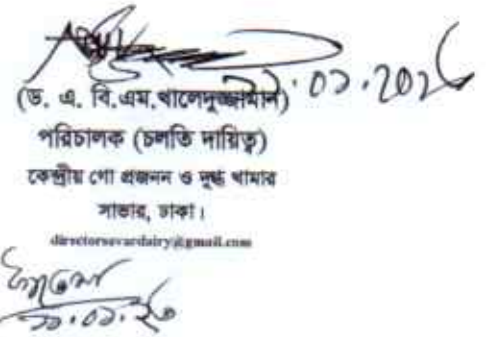 ২১.০১.২০২৬
(ড. এ. বি.এম.খালেদুজ্জামান)
পরিচালক (চলতি দায়িত্ব)
কেন্দ্রীয় গো প্রজনন ও দুগ্ধ খামার
সাভার, ঢাকা।
directorsavardairy@gmail.com
২১.০১.২৬